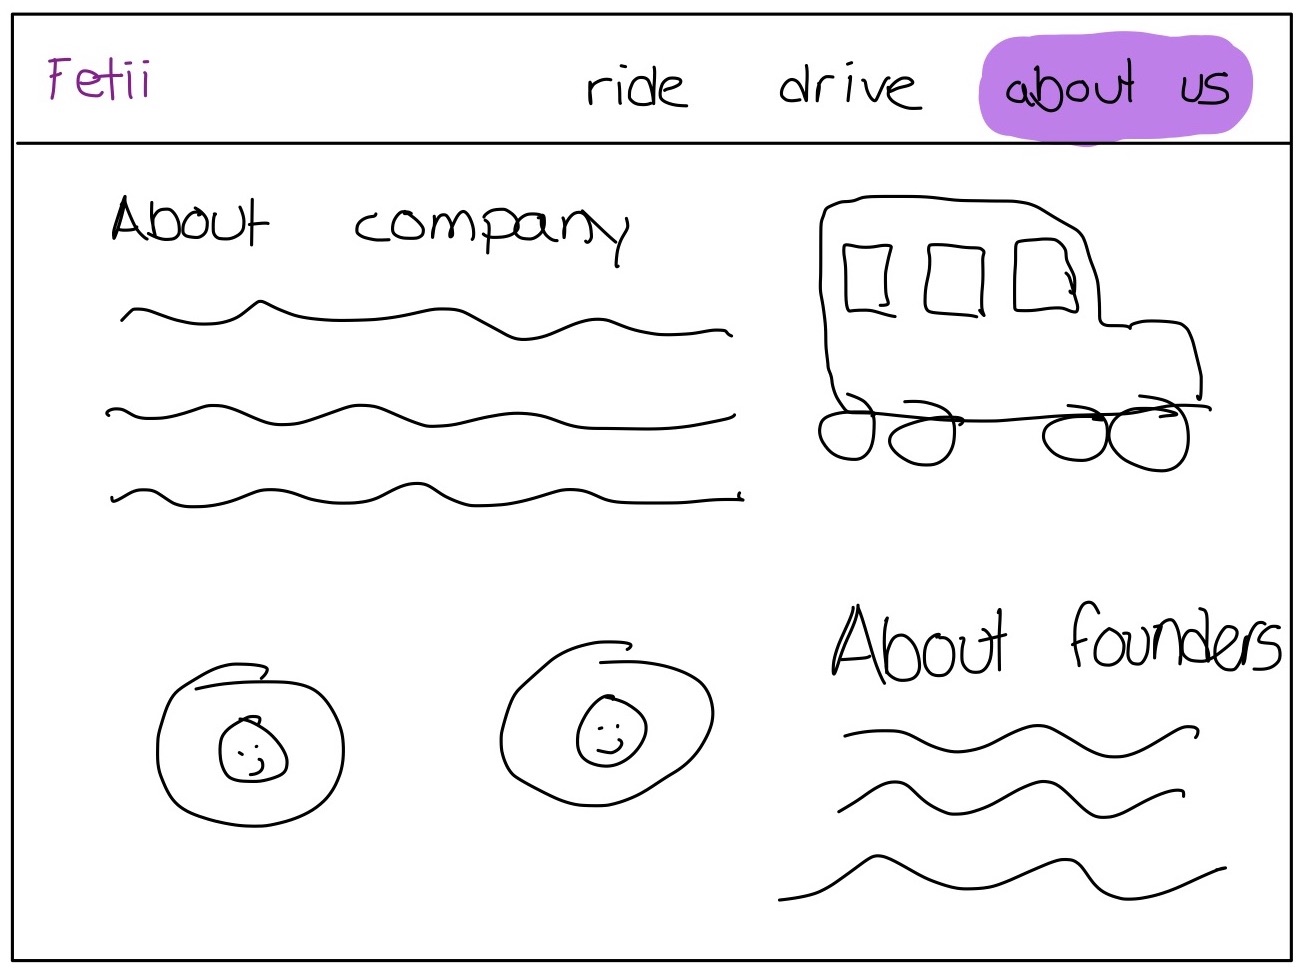 Fetii ride drive about us
About company
About founders